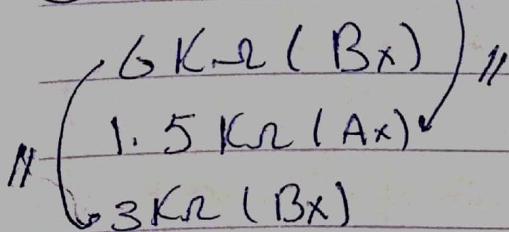 6 KΩ (Bx) //
1.5 KΩ (Ax)
// 3 KΩ (Bx)